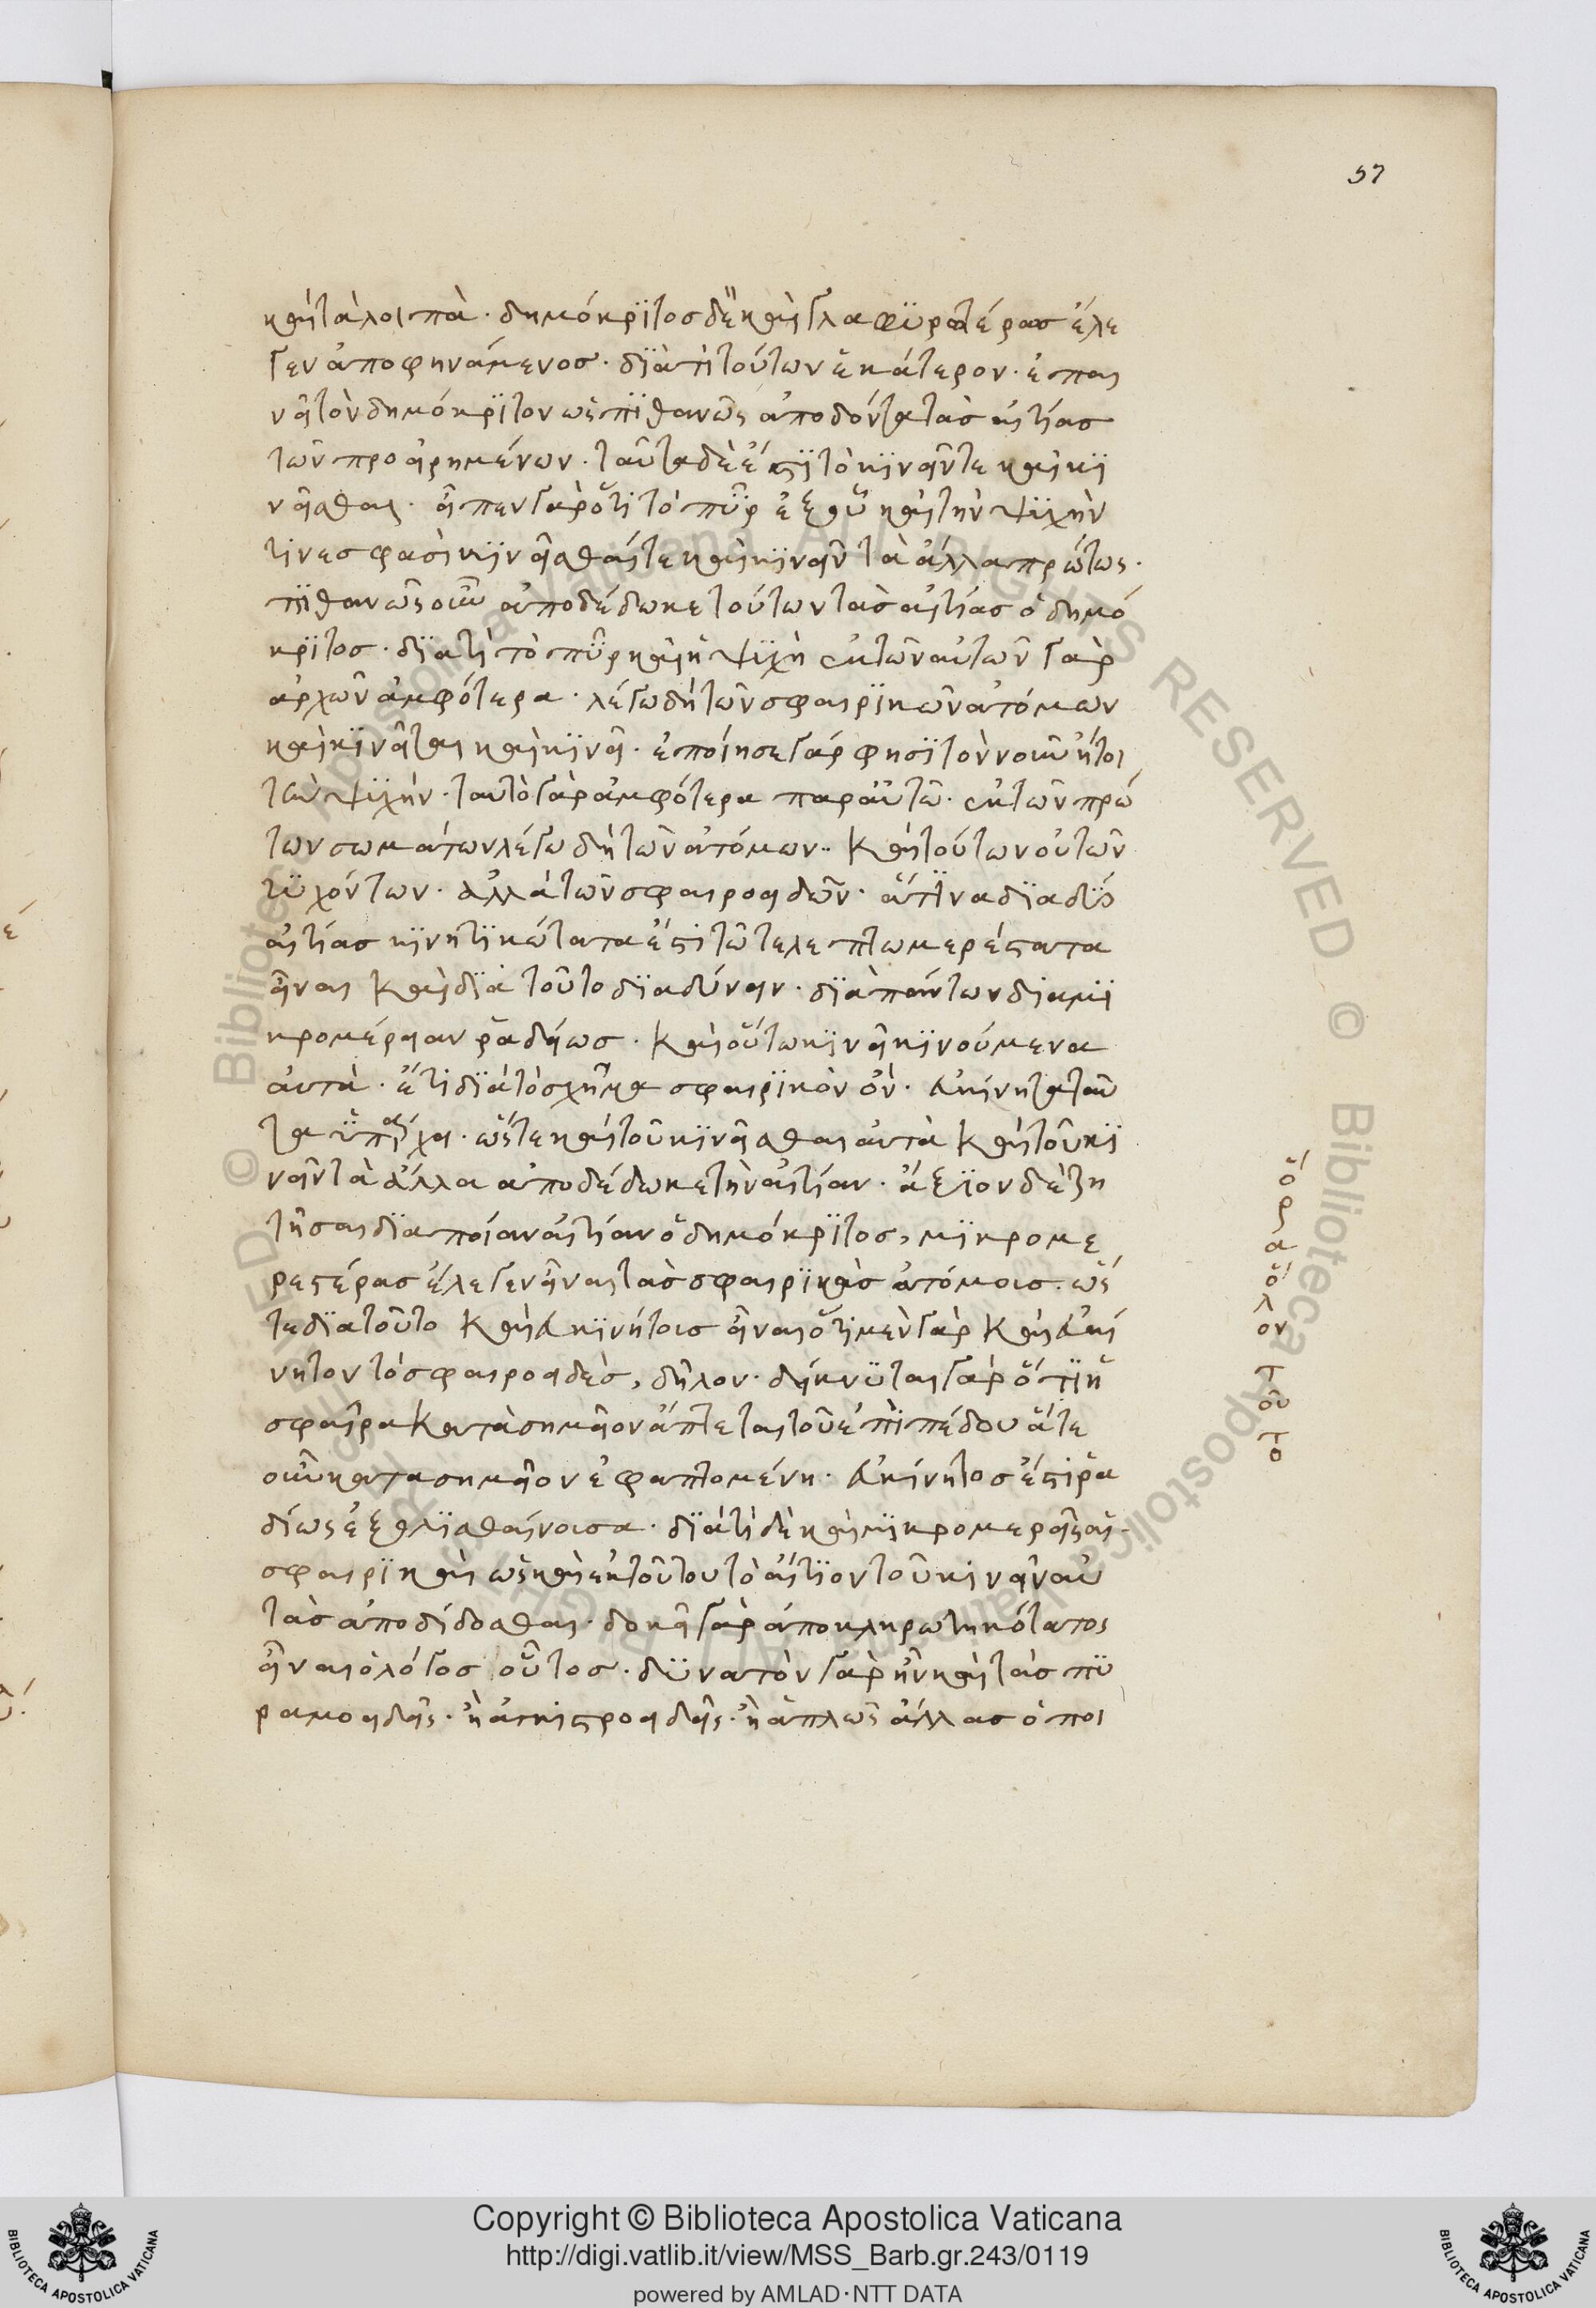 57
καὶ τὰ λοιπὰ · δημόκρϊτοσ δὲ καὶ γλαφϋρωτέρασ ἔλε
γεν ἀποφηνάμενοσ · δϊὰ τί τούτων ἑκάτερον · ἐπαι
νεῖ τὸν δημόκρϊτον ὡς πϊθανῶς ἀποδόντα τὰσ αἰτίασ
τῶν προειρημένων · ταῦτα δὲ ἐστϊ τὸ κϊνεῖν τε καὶ κϊ
νεῖσθαι · εἶπεν γὰρ ὅτι τὸ πῦρ ἐξ οὗ καὶ τὴν ψϋχὴν
τϊνεσ φασὶ κϊνεῖσθαί τε καὶ κϊνεῖν τὰ ἄλλα πρώτως ·
πϊθανῶς οὖν ἀποδέδωκε τούτων τὰσ αἰτίασ ὁ δημό
κρϊτοσ · δϊατί τὸ πῦρ καὶ ἡ ψϋχὴ ἐκ τῶν αὐτῶν γὰρ
ἀρχῶν ἀμφότερα · λέγω δὴ τῶν σφαιρϊκῶν ἀτόμων
καὶ κϊνεῖται καὶ κϊνεῖ · ἐποίησε γάρ φησϊ τὸν νοῦν ἤτοι
τὴν ψϋχήν · ταυτὸ γὰρ ἀμφότερα παρ αὐτῶ · ἐκ τῶν πρώ
των σωμάτων λέγω δὴ τῶν ἀτόμων · καὶ τούτων οὐ τῶν
τϋχόντων · ἀλλὰ τῶν σφαιροειδῶν · ἅτϊνα δϊὰ δϋό
αἰτίασ κϊνητϊκώτατα ἐστὶ τῶ τε λεπτωμερέστατα
εἶναι καὶ δϊὰ τοῦτο δϊαδύνειν · δϊὰ πάντων διὰ μϊ
κρομέρειαν ῥαδείωσ · καὶ οὕτω κϊνεῖ κϊνούμενα
αὐτὰ · ἔτι δϊὰ τὸ σχῆμα σφαιρϊκὸν ὂν · ἀκίνητα ταῦ
τα ϋπάρχει · ὥστε καὶ τοῦ κϊνεῖσθαι αὐτὰ καὶ τοῦ κϊ
νεῖν τὰ ἄλλα ἀποδέδωκε τὴν αἰτίαν · ἄξϊον δὲ ζη
τῆσαι δϊα ποίαν αἰτίαν ὁ δημόκρϊτοσ, μϊκρομε
ρεστέρασ ἔλεγεν εἶναι τὰσ σφαιρϊκὰσ ἀτόμοισ · ὥσ
τε δϊατοῦτο καὶ ἀκϊνήτοισ εἶναι ὅτι μὲν γὰρ καὶ ἀκί
νητον τὸ σφαιροειδὲσ, δῆλον · δείκνϋται γὰρ ὅτϊ ἡ
σφαῖρα κατὰ σημεῖον ἅπτεται τοῦ ἐπϊπέδου ἅτε
οὖν κατα σημεῖον ἐφαπτομένη · ἀκίνητοσ ἐστὶ ῥα
δίως ἐξολϊσθαίνουσα · δϊατί δὲ καὶ μϊκρομερεῖς αἱ
σφαιρϊκαὶ ὡς καὶ ἐκ τοῦτου τὸ αἴτϊον τοῦ κινεῖν αὐ
τὰσ ἀποδίδοσθαι · δοκεῖ γὰρ ἀποκληρωτηκότατος
εἶναι ὁ λόγοσ οὗτοσ · δϋνατὸν γὰρ ἦν καὶ τὰσ πϋ
ραμοειδεῖς · ἢ ἀγκιστροειδεῖς · ἢ ἁπλῶς ἄλλασ ὁποι
ὅ
ρ
α
ὅ
λ
ον
τ
οῦ
τ
ο
Copyright © Biblioteca Apostolica Vaticana
http://digi.vatlib.it/view/MSS_Barb.gr.243/0119
powered by AMLAD·NTT DATA
BIBLIOTECA APOSTOLICA VATICANA
BIBLIOTECA APOSTOLICA VATICANA